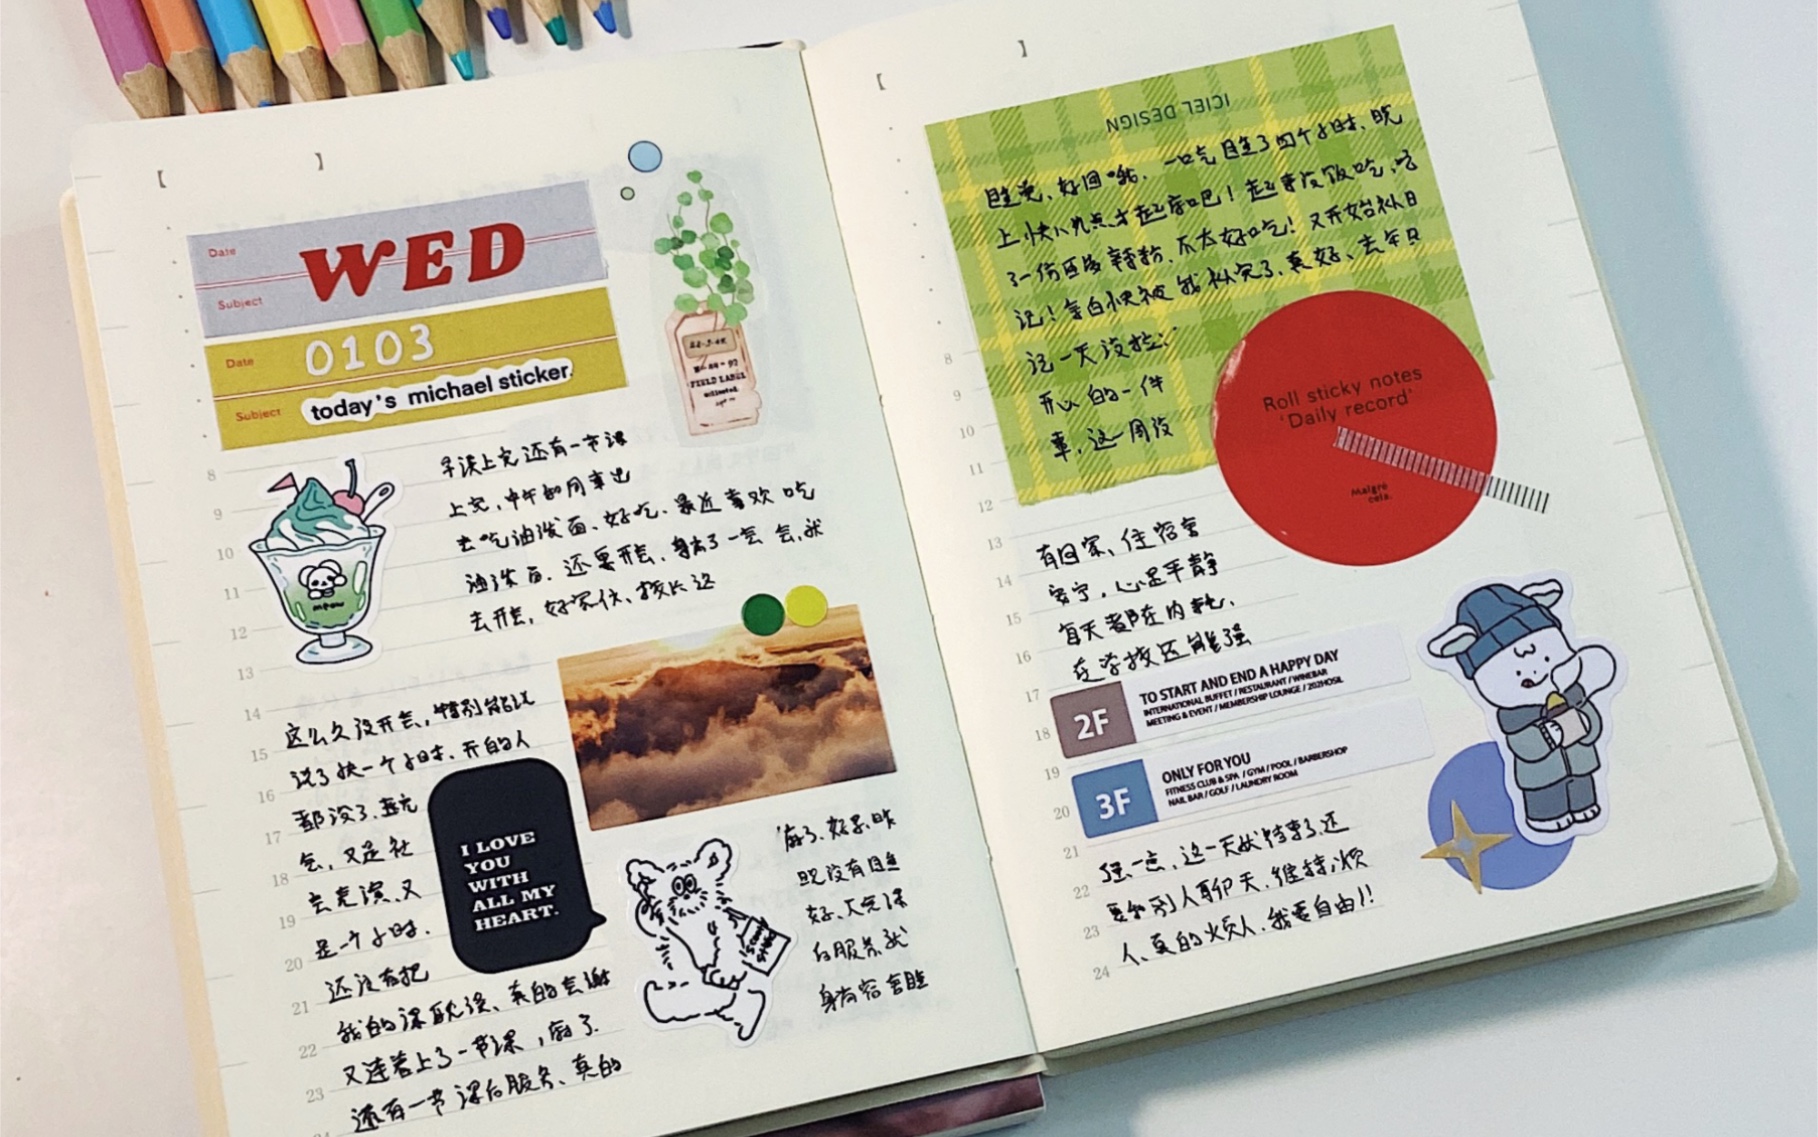 【 】
Date
WED
Subject
Date
0103
Subject
today's michael sticker.
FIELD LABEL
早读上完还有一节课
上完,中午和同事出
去吃油泼面、好吃、最近喜欢吃
油泼面、还要开会、身高了一会会,就
去开会,好家伙、校长这
meow
这么久没开会,特别能说
说了快一个小时、开的人
都没了.
会,又是社
去意演、又
是一个小时.
还没有把
我的课耽误、真的会谢
又连着上了一节课,麻了.
还有一节课后服务、真的
I LOVE
YOU
WITH
ALL MY
HEART.
麻了、好累、昨
晚没有睡
好、上完课
后服务就
宿舍睡
8
9
10
11
12
13
14
15
16
17
18
19
20
21
22
23
【 】
ICIEL DESIGN
睡觉、好困哦. 一口气睡了四个小时、晚
上快八九点才起床吧!起来没饭吃,吃
了一份酸辣粉、不太好吃!又开始补日
记!空白快被我补完了、真好、去年日
记一天没拉;
开心的一件
事,这一周没
Roll sticky notes
'Daily record'
Malgré
cela.
有回家、住宿舍
安宁,心是平静
每天都在内耗、
在学校还能强
2F
TO START AND END A HAPPY DAY
INTERNATIONAL BUFFET / RESTAURANT / WINEBAR
MEETING & EVENT / MEMBERSHIP LOUNGE / 202HOSIL
3F
ONLY FOR YOU
FITNESS CLUB & SPA / GYM / POOL / BARBERSHOP
NAIL BAR / GOLF / LAUNDRY ROOM
强一点,这一天就结束了、还
要和别人聊天、维持,烦
人、真的烦人、我要自由!!
8
9
10
11
12
13
14
15
16
17
18
19
20
21
22
23
24